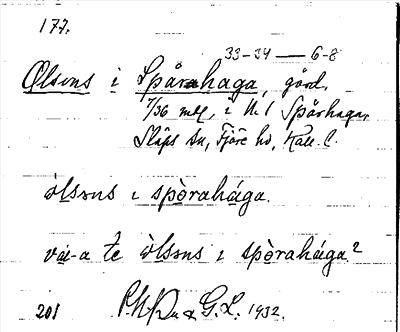 177.
33-34 — 6-8
Olsens i Spårahaga, gård,
7/36 mtl, i N. 1 Spårhaga,
Släps sn, Fjäre hd, Hall. l.
òlsəns ı spòrahága.
vá-a te òlsəns ı spòrahága?
201 G. L. 1932.